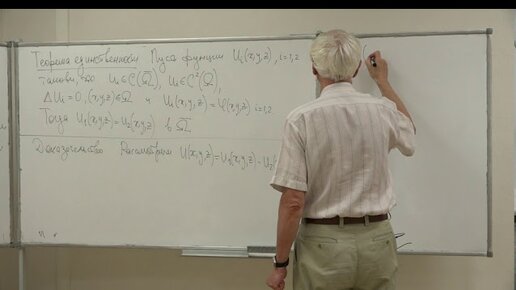 Теорема единственности Пусть функции Uᵢ(x,y,z), i=1,2
таковы, что Uᵢ∈C(Ω̅), Uᵢ∈C²(Ω),
ΔUᵢ=0, (x,y,z)∈Ω и Uᵢ(x,y,z)=φ(x,y,z) i=1,2
Тогда U₁(x,y,z)=U₂(x,y,z) в Ω̅
Доказательство Рассмотрим U(x,y,z)=U₁(x,y,z)-U₂(